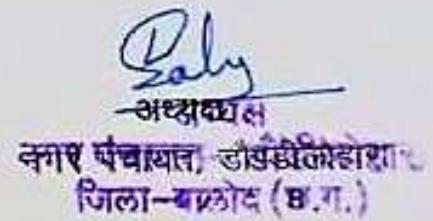 अध्यक्ष
नगर पंचायत, डौण्डीलोहारा
जिला-बालोद (छ.ग.)